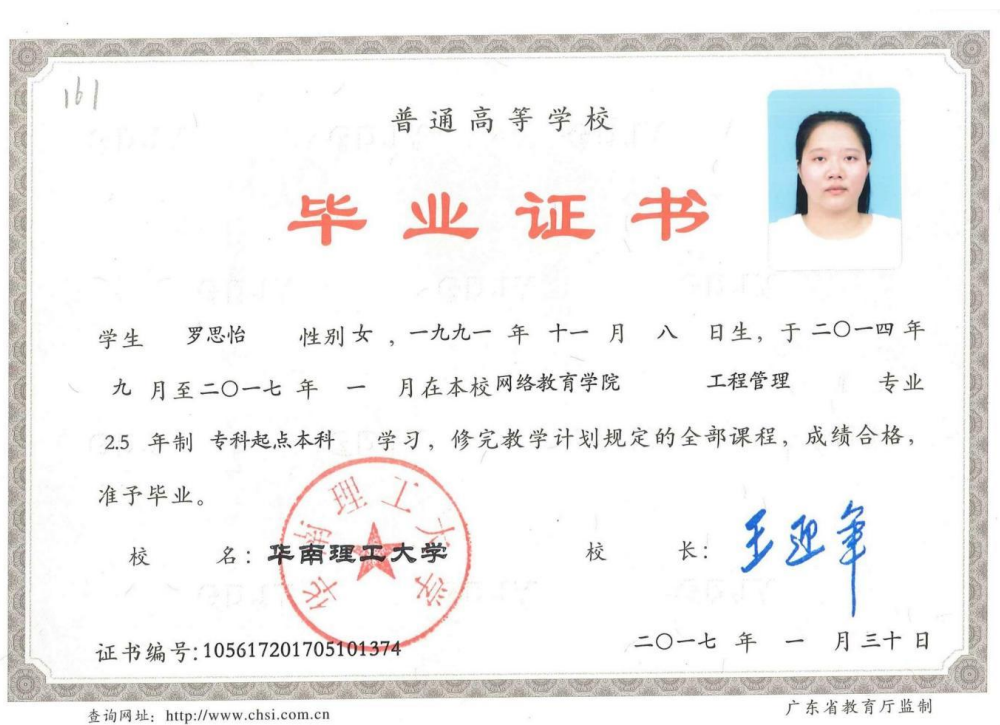 161
普通高等学校
毕业证书
学生 罗思怡 性别 女 ，一九九一 年 十一 月 八 日生，于 二〇一四 年
九 月至 二〇一七 年 一 月在本校 网络教育学院 工程管理 专业
2.5 年制 专科起点本科 学习，修完教学计划规定的全部课程，成绩合格，
准予毕业。
华南理工大学
校 名：华南理工大学 校 长：王迎军
证书编号:105617201705101374 二〇一七 年 一 月 三十 日
查询网址：http://www.chsi.com.cn 广东省教育厅监制